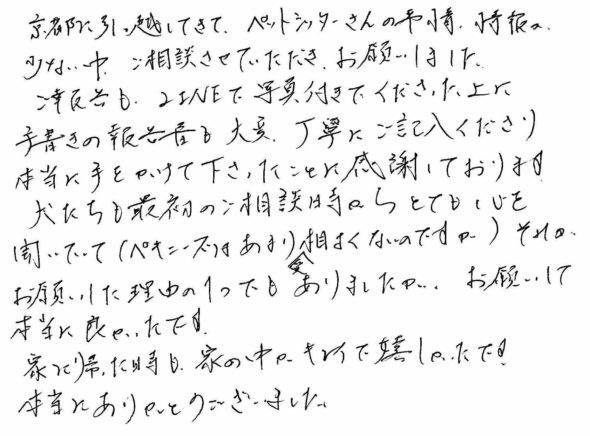 京都に引っ越してきて、ペットシッターさんの事情、情報の
少ない中、ご相談させていただき、お願いしました。
ご報告も、LINEで写真付きでくださった上に
手書きの報告書も大変、丁寧にご記入くださり
本当に手をかけて下さったことに感謝しております!
犬たちも最初のご相談時からとても心を
開いていて(ペキニーズはあまり相性よくないのですが)それが、
お願いした理由の1つでもありましたが、お願いして
本当に良かったです!
家に帰った時も、家の中がキレイで嬉しかったです!
本当にありがとうございました。